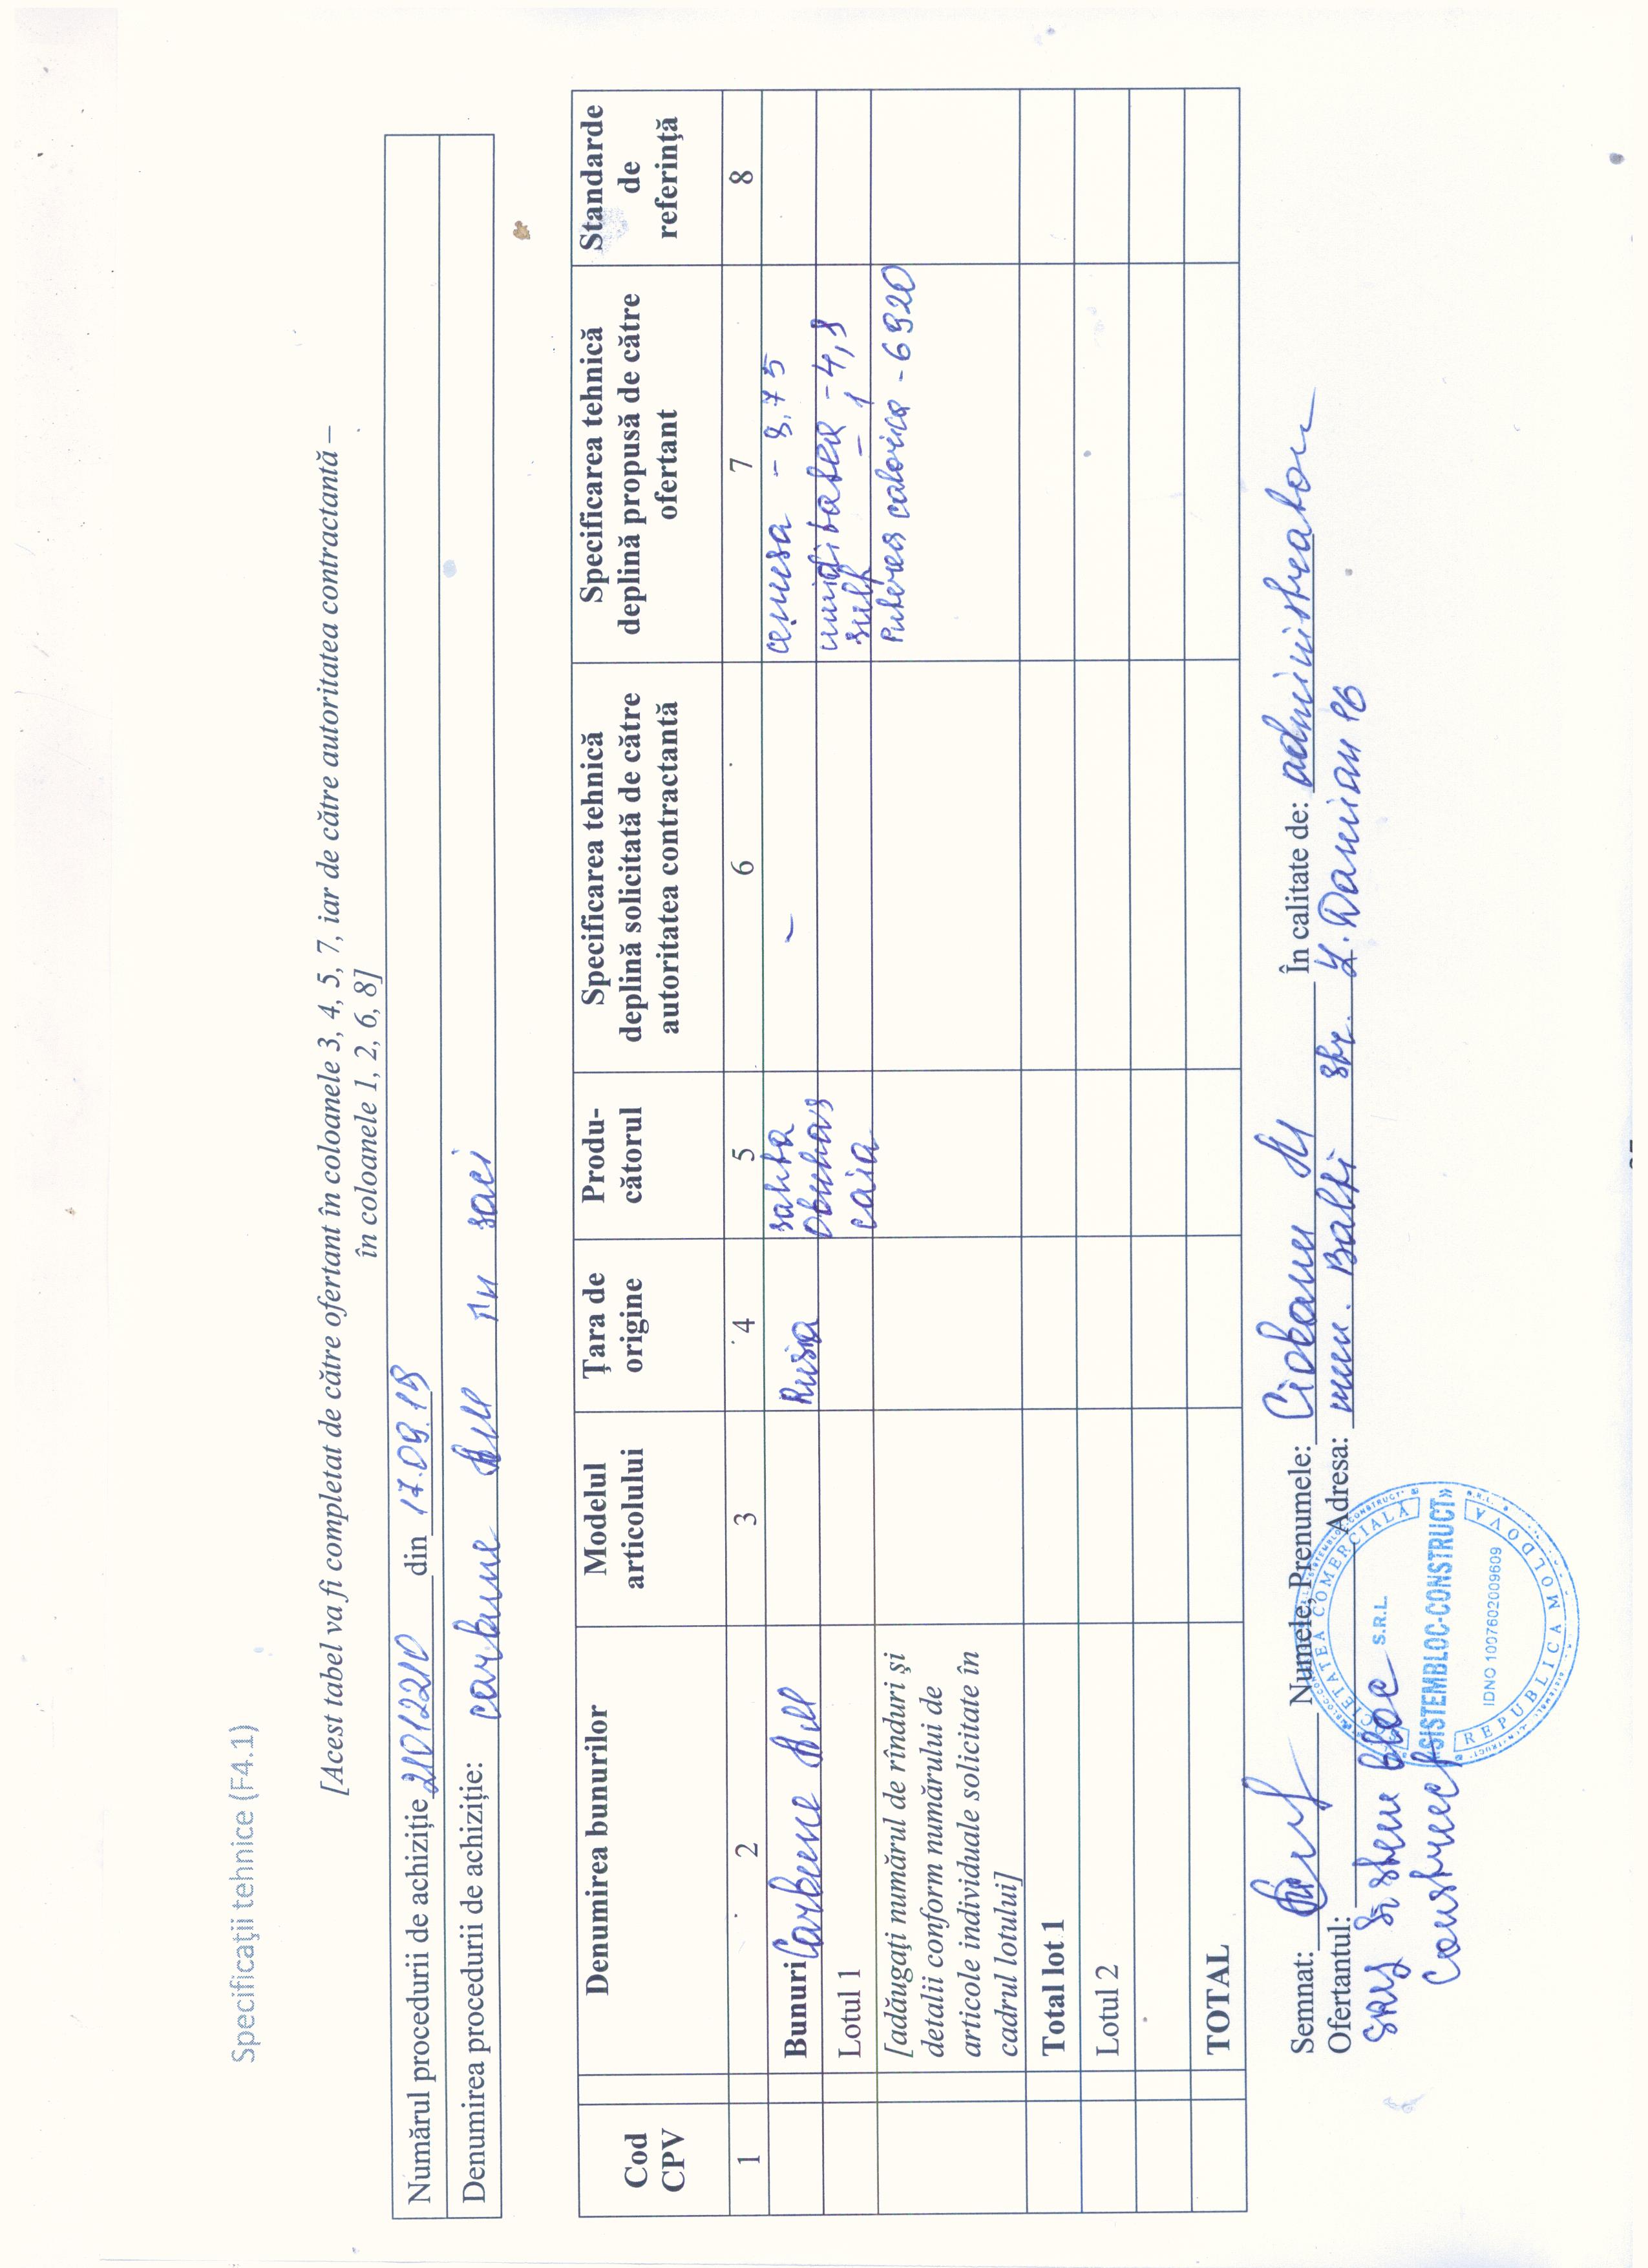 Specificaţii tehnice (F4.1)
[Acest tabel va fi completat de către ofertant în coloanele 3, 4, 5, 7, iar de către autoritatea contractantă –
în coloanele 1, 2, 6, 8]
Numărul procedurii de achiziţie 21012210 din 17.09.19
Denumirea procedurii de achiziţie: carbune în saci
Cod CPV
Denumirea bunurilor
Modelul articolului
Ţara de origine
Produ-cătorul
Specificarea tehnică deplină solicitată de către autoritatea contractantă
Specificarea tehnică deplină propusă de către ofertant
Standarde de referinţă
1 2 3 4 5 6 7 8
Bunuri Carbune Rusia sahta – cenusa - 8,75
Lotul 1 umiditatea - 4,8
caia sulf - 1
[adăugaţi numărul de rînduri şi
detalii conform numărului de
articole individuale solicitate în
cadrul lotului]
Puterea calorica - 6920
Total lot 1
Lotul 2
TOTAL
Semnat: Numele, Prenumele: Ciobanu În calitate de: administrator
Ofertantul: Adresa: mun. Balti str. Damian
SRL Sistem bloc
Construct
SOCIETATEA COMERCIALĂ
S.R.L.
«SISTEMBLOC-CONSTRUCT»
IDNO 1007602009609
REPUBLICA MOLDOVA